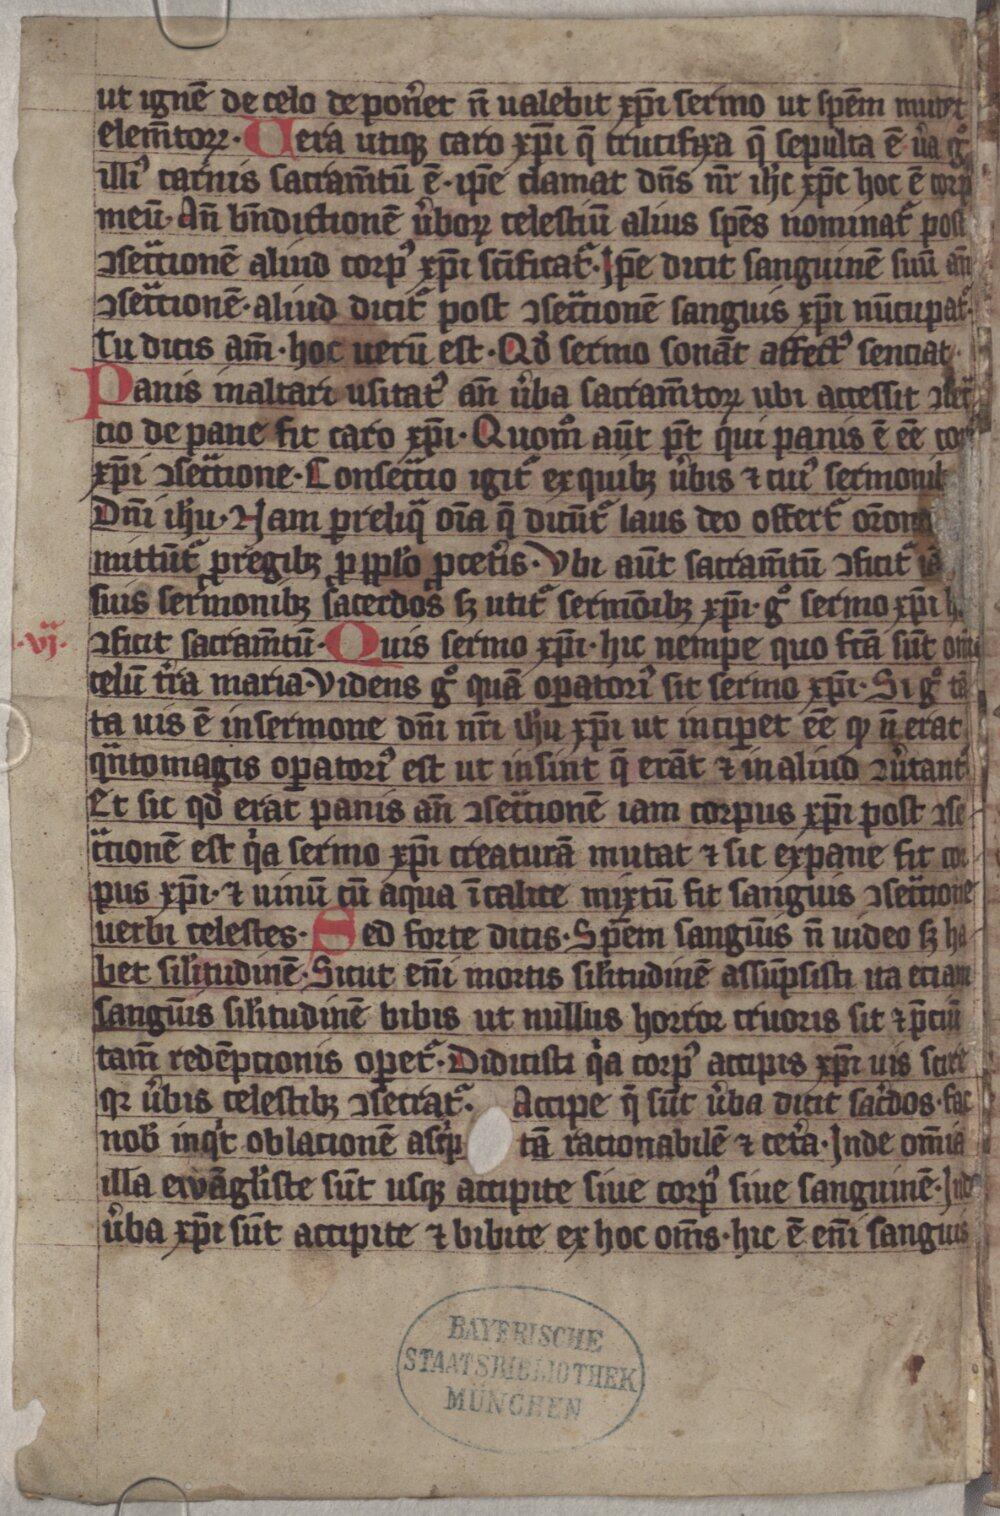 ut ignē de celo depon͛et n̄ ualebit xp̄i sermo ut spēm mutet
elem̄toꝝ· Uera utiqꝫ caro xp̄i q̄ crucifixa q̄ sepulta ē u̾a gͦ
illiꝰ carnis sacram̄tū ē· ip̄e clamat dn̄s nr̄ ihc̄ xp̄c hoc ē corp
meū· An̄ bn̄dictionē u̾boꝝ celestiū alius spēs nominat᷑ post
ꝯsec̄cionē aliud corpꝰ xp̄i sc̄ificat᷑· Ip̄e dicit sanguinē suū an̄
ꝯsec̄cionē· aliud dicit᷑ post ꝯsec̄cionē sanguis xp̄i nūcupat᷑·
Tu dicis am̄· hoc uerū est· Qd̾ sermo sonāt affectꝰ senciat·
Panis in altari usitatꝰ an̄ u̾ba sacram̄toꝝ ubi accessit ꝯsec̄
cio de pane fit caro xp̄i· Quom̊ aūt pt̄ qui panis ē eē cor
xp̄i ꝯsec̄cione· Consec̄cio igit᷑ ex quibꝫ u̾bis ⁊ cuiꝰ sermonib
Dn̄i ihu· Nam ꝑ reliq̄ om̄a q̄ dicūt᷑ laus deo offert᷑ or̄one
mittūt᷑ p̱regibꝫ ꝓ pplo ꝓ cetis· Vbi aūt sacram̄tū ꝯficit᷑ iā
suis sermonibꝫ sacerdos sꝫ utit᷑ sermōibꝫ xp̄i· gͦ sermo xp̄i h
·vj· ꝯficit sacram̄tū· Quis sermo xp̄i· hic nempe quo fc̄a sūt om̄
celū tr̄a maria· Videns gͦ quā oꝑatoriꝰ sit sermo xp̄i· Si gͦ tā
ta uis ē in sermone dn̄i nr̄i ihu xp̄i ut inciꝑet eē qͥ n̄ erat
qn̄to magis oꝑatoriꝰ est ut in sint q̄ erāt ⁊ in aliud ꝯu̾tant᷑
Et sic qd̾ erat panis an̄ ꝯsec̄cionē iam corpus xp̄i post ꝯse
c̄cionē est qͥa sermo xp̄i creaturā mutat ⁊ sic ex pane fit cor
pus xp̄i· ⁊ uinū cū aqua ī calice mixtū fit sanguis ꝯsec̄cione
uerbi celestes· Sed forte dicis· Spēm sangūis n̄ uideo sꝫ ha
bet silitudinē· Sicut eni mortis silitudinē assūpsisti ita eciam
sangūis silitudinē bibis ut nullus horror cruoris sit ⁊ p̄ciū
tam̄ redēpcionis oꝑet᷑· Didicisti qͥa corpꝰ accipis xp̄i uis scire
qꝛ u̾bis celestibꝫ ꝯsecrat᷑· Accipe q̄ sūt u̾ba dicit sac̾dos· fac
nob̾ inqͥt oblacionē asc̾p tā racionabilē ⁊ cet̾a· Inde om̄ia
illa ewāgliste sūt usqꝫ accipite siue corpꝰ siue sanguinē· Inde
u̾ba xp̄i sūt accipite ⁊ bibite ex hoc om̄s· hic ē eni sanguis
BAYERISCHE
STAATSBIBLIOTHEK
MÜNCHEN